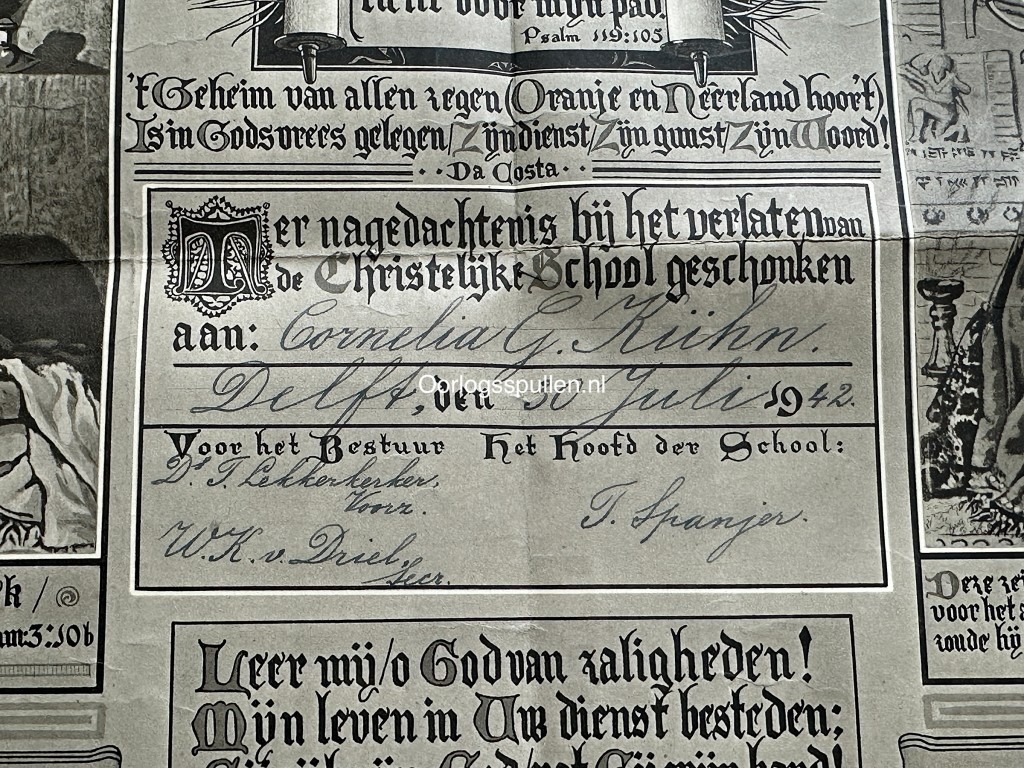 licht voor mijn pad.
Psalm 119:105
't Geheim van allen zegen (Oranje en Neerland hoort)
Is in Godsvrees gelegen/Zijn dienst/Zijn gunst/Zijn Woord!
Da Costa
Ter nagedachtenis bij het verlaten van
de Christelijke School geschonken
aan: Cornelia G. Kühn.
Delft, den 30 Juli 1942.
Voor het Bestuur
Het Hoofd der School:
Ds. T. Lekkerkerker,
Voorz.
T. Spanjer.
W. K. v. Driel,
Secr.
Oorlogsspullen.nl
3:10b
Deze
voor het
zoude hij
Leer mij/o God van zaligheden!
Mijn leven in Uw dienst besteden;